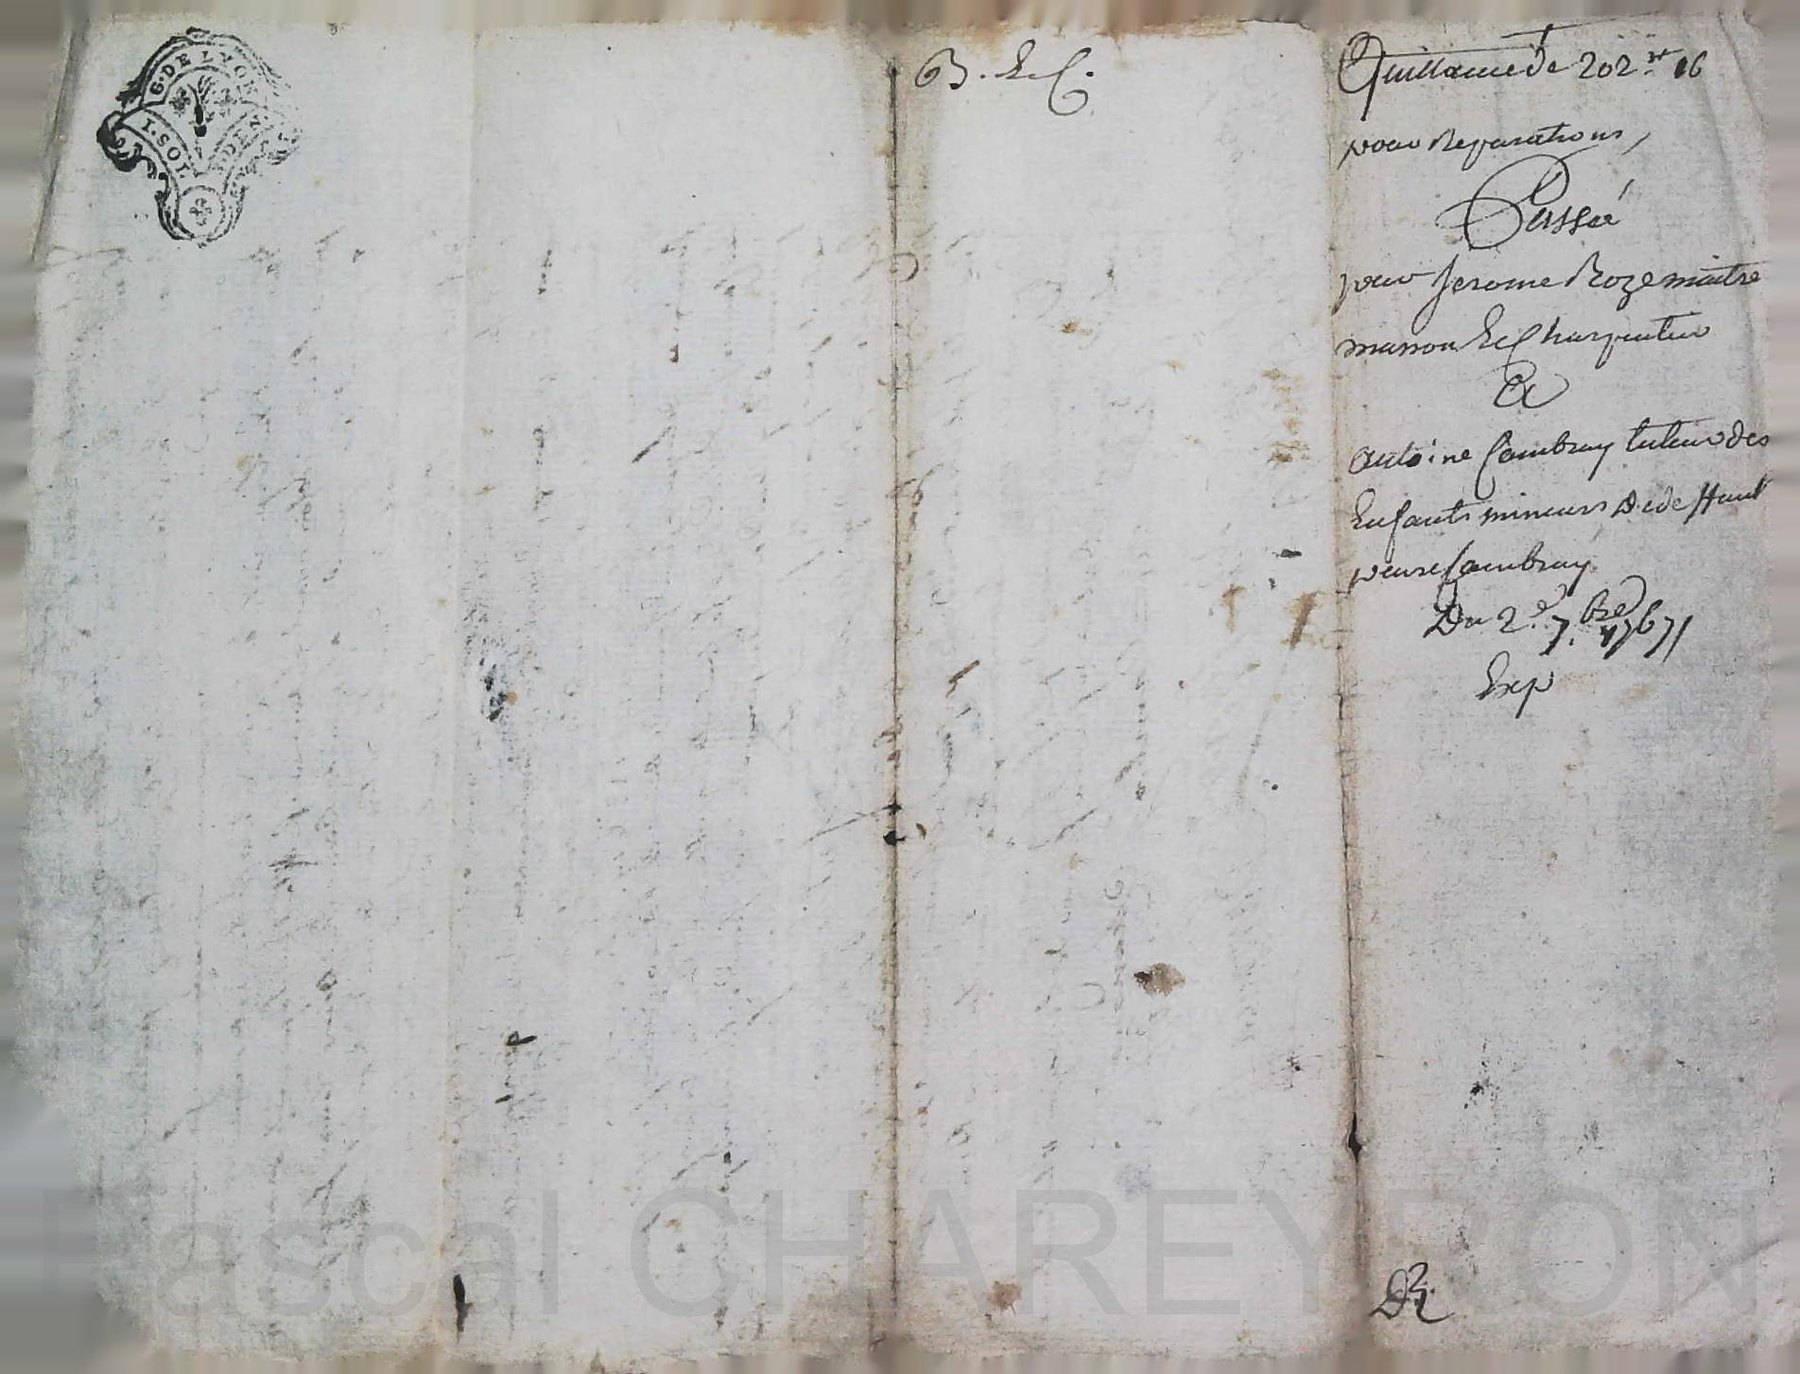 G. DE LYON
I. SOL
B. Ec.
Quittance de 202 ᵗᵗ 16
pour Reparations,
Passée
pour Jerome Roze maitre
masson Et Charpentier
Et
Antoine Cambray tuteur des
Enfants mineurs De de funt
pierre Cambray
Du 2.e 7.bre 1767
Exp
Pascal CHAREYRON